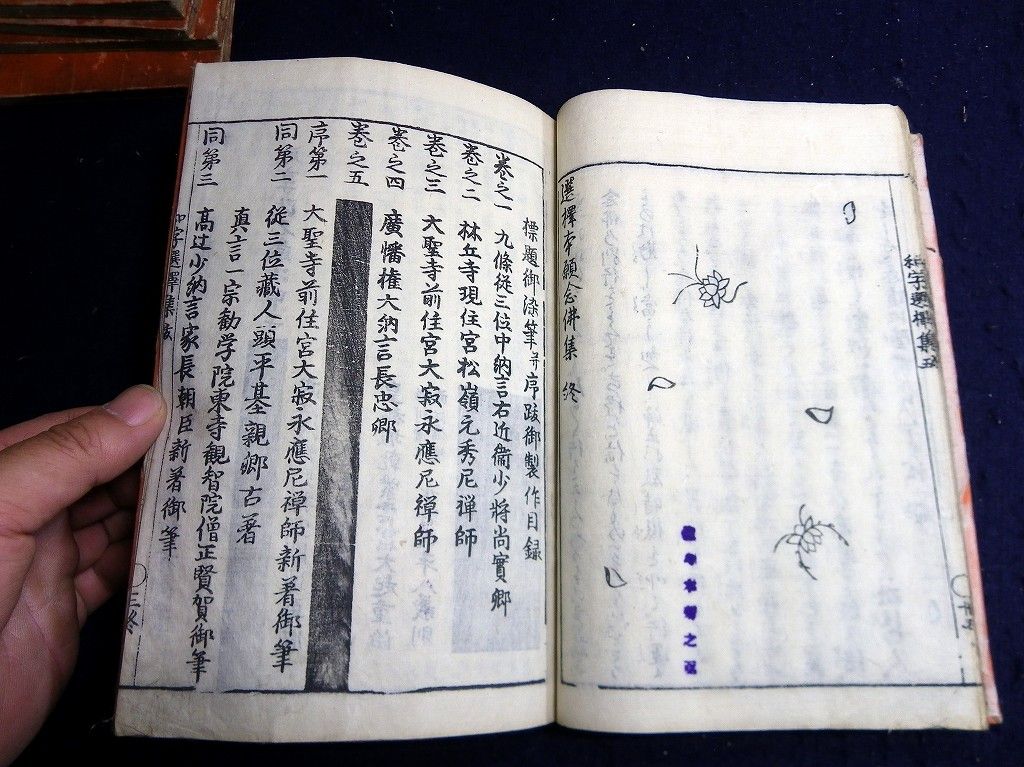 選擇本願念佛集 終
標題御染筆并序跋御製作目録
卷之一 九條從三位中納言右近衞少將尚實卿
卷之二 林丘寺現住宮松嶺元秀尼禅師
卷之三 大聖寺前住宮大寂永應尼禅師
卷之四 廣幡權大納言長忠卿
卷之五
序第一 大聖寺前住宮大寂永應尼禅師新著御筆
同第二 從三位藏人頭平基親卿古著
真言一宗勸学院東寺観智院僧正賢賀御筆
同第三 髙辻少納言家長朝臣新著御筆
選擇集
三終